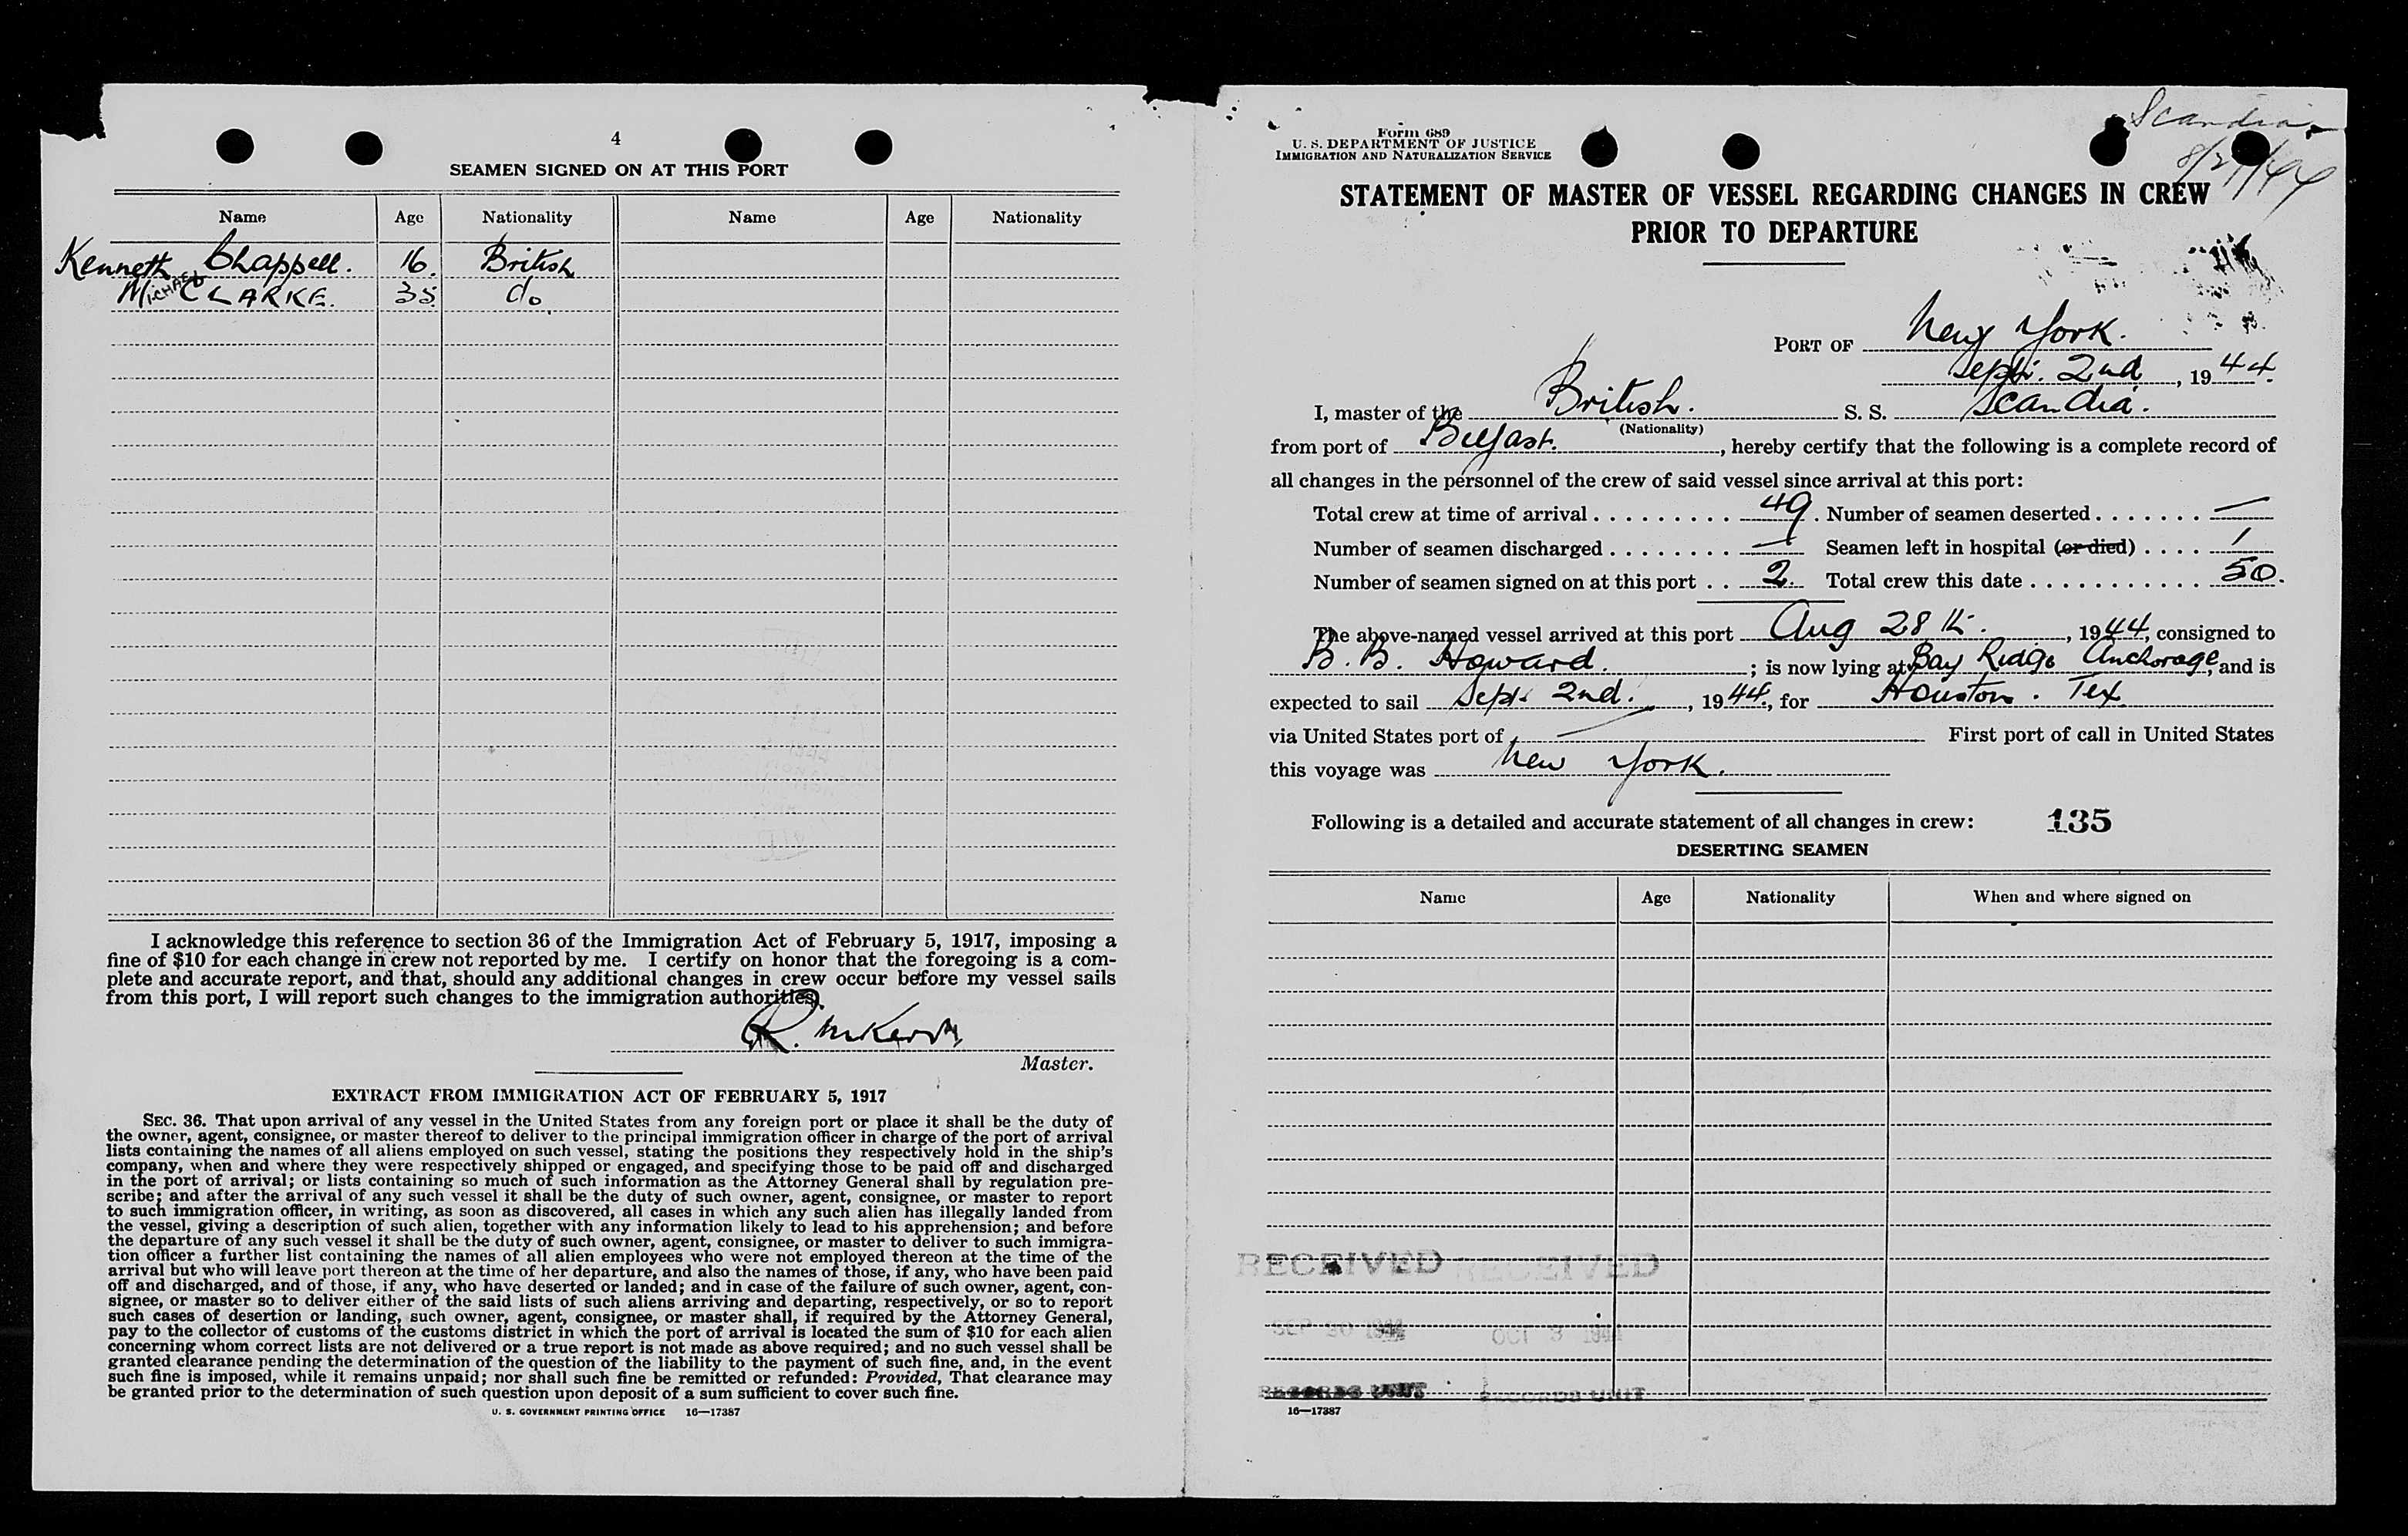 4
SEAMEN SIGNED ON AT THIS PORT
Name Age Nationality Name Age Nationality
Kenneth Chappell. 16. British
MICHAEL CLARKE. 35 do
I acknowledge this reference to section 36 of the Immigration Act of February 5, 1917, imposing a
fine of $10 for each change in crew not reported by me. I certify on honor that the foregoing is a com-
plete and accurate report, and that, should any additional changes in crew occur before my vessel sails
from this port, I will report such changes to the immigration authorities.
R.
Master.
EXTRACT FROM IMMIGRATION ACT OF FEBRUARY 5, 1917
SEC. 36. That upon arrival of any vessel in the United States from any foreign port or place it shall be the duty of
the owner, agent, consignee, or master thereof to deliver to the principal immigration officer in charge of the port of arrival
lists containing the names of all aliens employed on such vessel, stating the positions they respectively hold in the ship's
company, when and where they were respectively shipped or engaged, and specifying those to be paid off and discharged
in the port of arrival; or lists containing so much of such information as the Attorney General shall by regulation pre-
scribe; and after the arrival of any such vessel it shall be the duty of such owner, agent, consignee, or master to report
to such immigration officer, in writing, as soon as discovered, all cases in which any such alien has illegally landed from
the vessel, giving a description of such alien, together with any information likely to lead to his apprehension; and before
the departure of any such vessel it shall be the duty of such owner, agent, consignee, or master to deliver to such immigra-
tion officer a further list containing the names of all alien employees who were not employed thereon at the time of the
arrival but who will leave port thereon at the time of her departure, and also the names of those, if any, who have been paid
off and discharged, and of those, if any, who have deserted or landed; and in case of the failure of such owner, agent, con-
signee, or master so to deliver either of the said lists of such aliens arriving and departing, respectively, or so to report
such cases of desertion or landing, such owner, agent, consignee, or master shall, if required by the Attorney General,
pay to the collector of customs of the customs district in which the port of arrival is located the sum of $10 for each alien
concerning whom correct lists are not delivered or a true report is not made as above required; and no such vessel shall be
granted clearance pending the determination of the question of the liability to the payment of such fine, and, in the event
such fine is imposed, while it remains unpaid; nor shall such fine be remitted or refunded: Provided, That clearance may
be granted prior to the determination of such question upon deposit of a sum sufficient to cover such fine.
U. S. GOVERNMENT PRINTING OFFICE 16—17387
Scandia
Form 689
U. S. DEPARTMENT OF JUSTICE
IMMIGRATION AND NATURALIZATION SERVICE
STATEMENT OF MASTER OF VESSEL REGARDING CHANGES IN CREW
PRIOR TO DEPARTURE
PORT OF New York.
Sept. 2nd, 1944.
I, master of the British. S. S. Scandia.
(Nationality)
from port of Belfast., hereby certify that the following is a complete record of
all changes in the personnel of the crew of said vessel since arrival at this port:
Total crew at time of arrival . . . . . . . . . 49. Number of seamen deserted . . . . . . . —
Number of seamen discharged . . . . . . . . — Seamen left in hospital (or died) . . . . 1
Number of seamen signed on at this port . . 2. Total crew this date . . . . . . . . . . . . 50.
The above-named vessel arrived at this port Aug 28th., 1944, consigned to
B. B. Howard.; is now lying at Bay Ridge Anchorage, and is
expected to sail Sept. 2nd., 1944, for Houston. Tex
via United States port of — First port of call in United States
this voyage was New York.
Following is a detailed and accurate statement of all changes in crew: 135
DESERTING SEAMEN
Name Age Nationality When and where signed on
RECEIVED RECEIVED
SEP 20 1944 OCT 3 1944
RECORDS UNIT RECORDS UNIT
16—17387